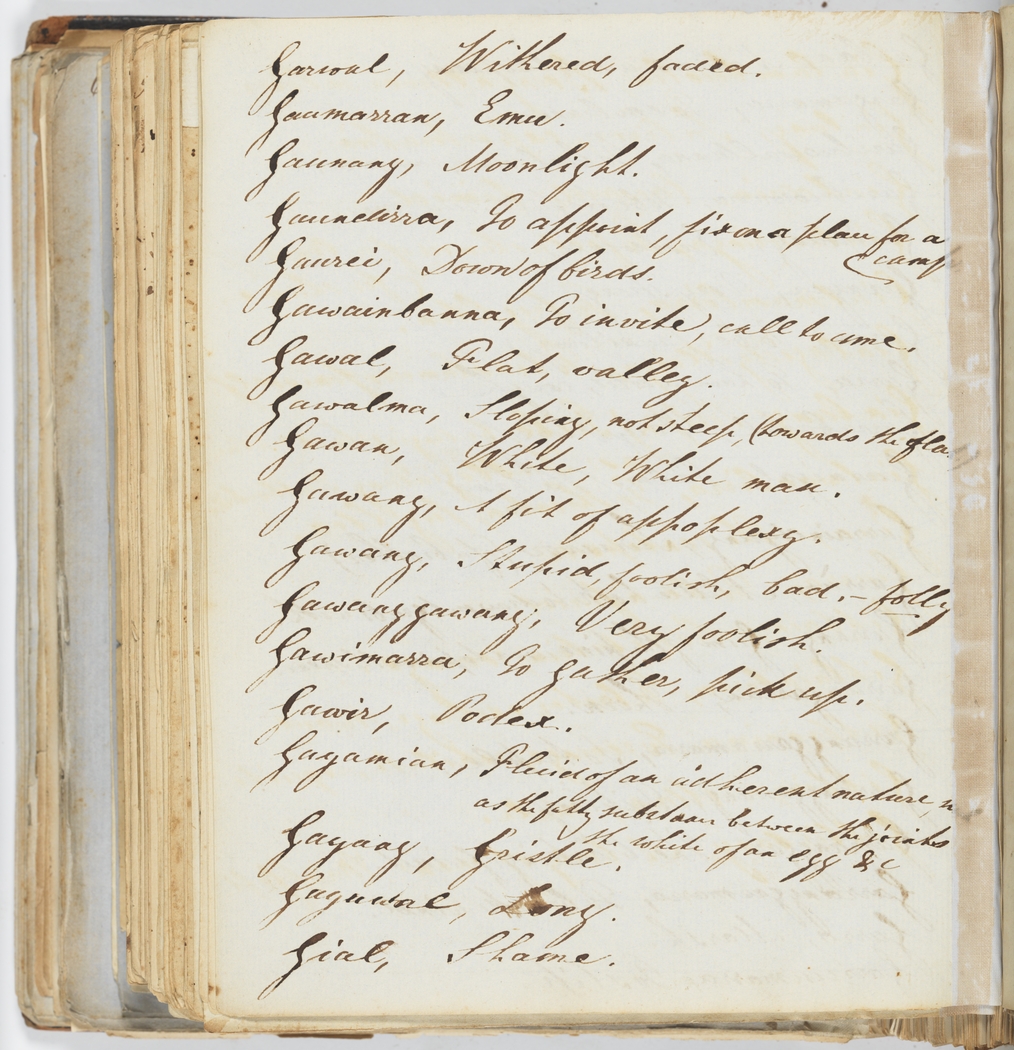 Garwal, Withered, faded.
Gaumarran, Emu.
Gaunang, Moonlight.
Gaundirra, To appoint, fix on a plan for a
camp
Gaurei, Down of birds.
Gawainbanna, To invite, call to come.
Gawal, Flat, valley.
Gawalma, Sloping, not steep, (towards the fla
Gawan, White, White man.
Gawang, A fit of appoplexy.
Gawang, Stupid, foolish, bad. – folly
Gawanggawang, Very foolish.
Gawimarra, To gather, pick up.
Gawir, Podex.
Gayamian, Fluid of an adherent nature,
as the fatty substance between the joints
the white of an egg &c
Gayang, Gristle.
Gayuwal, Long.
Gial, Shame.